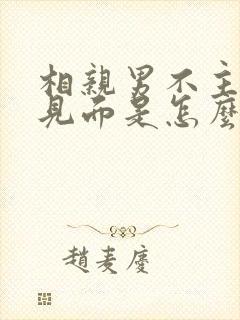 相親男不主
見而是怎麼
趙麦慶